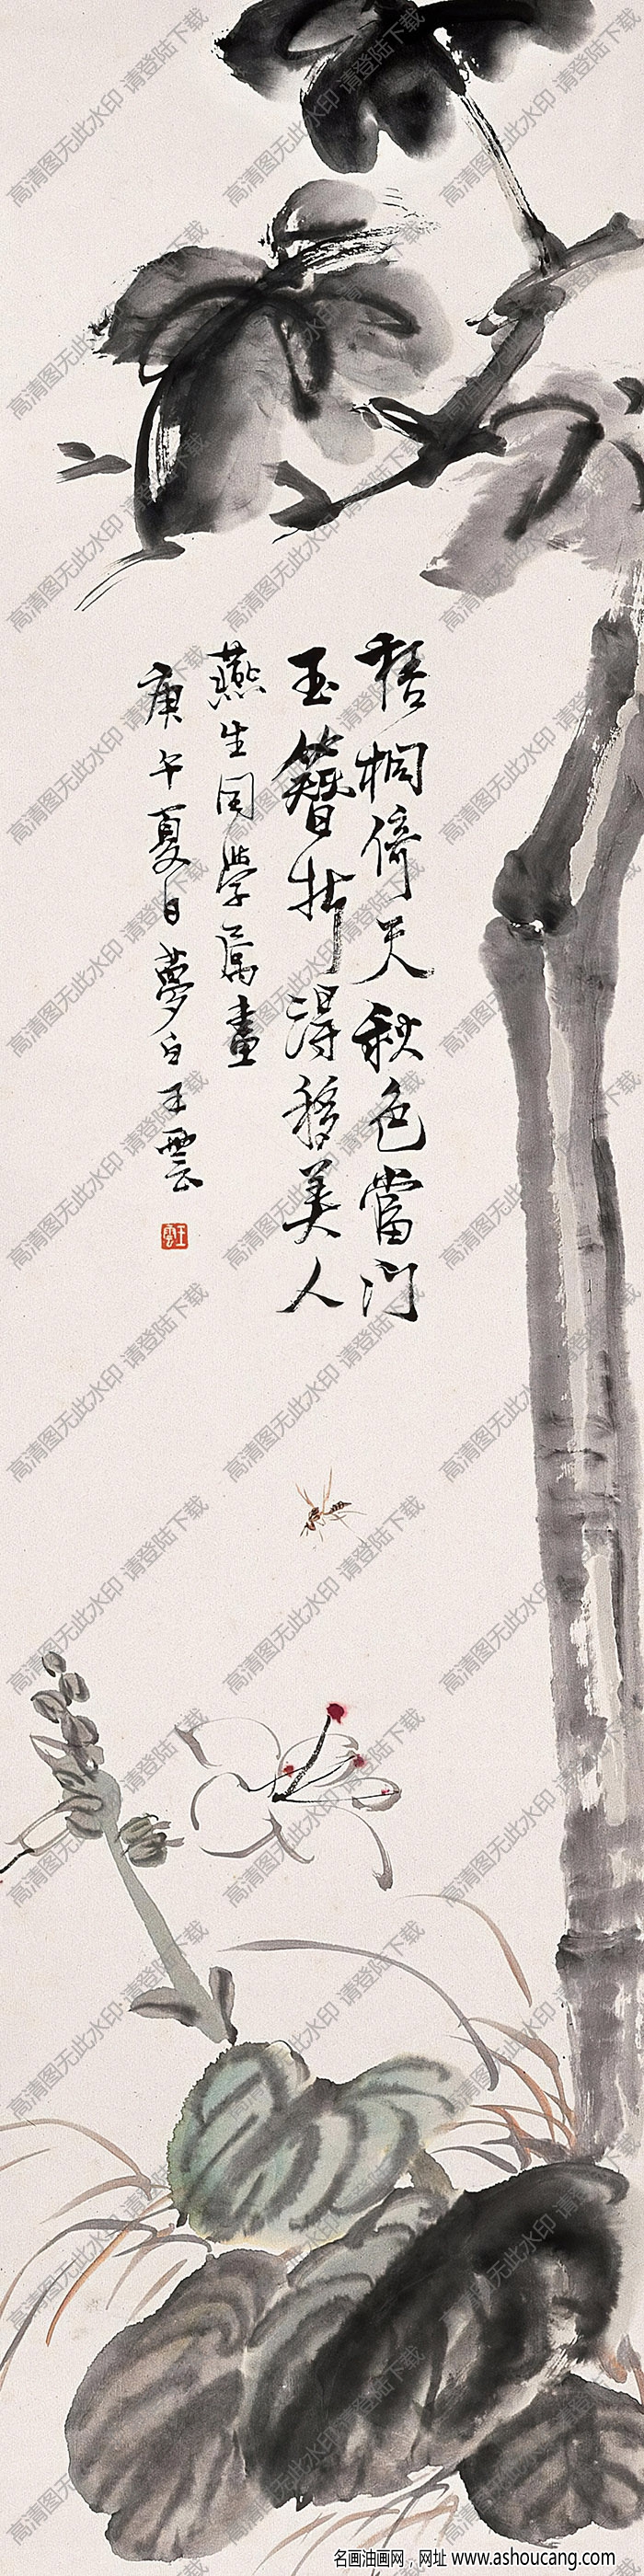 梧桐倚天秋色當门
玉簪折得移美人
燕生同學屬畫
庚午夏日夢白王雲
王雲
高清图无此水印 请登陆下载
名画油画网，网址 www.ashoucang.com